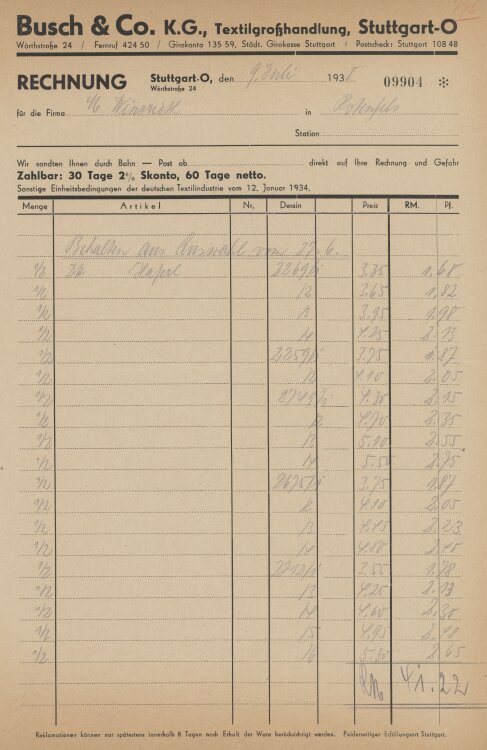 Busch & Co. K.G., Textilgroßhandlung, Stuttgart-O
Wörthstraße 24 / Fernruf 424 50 / Girokonto 135 59, Städt. Girokasse Stuttgart / Postscheck: Stuttgart 108 48
RECHNUNG Stuttgart-O, den 9. Juli 1938. 09904 *
Wörthstraße 24
für die Firma in Rotenfels
Station
Wir sandten Ihnen durch Bahn — Post ab direkt auf Ihre Rechnung und Gefahr
Zahlbar: 30 Tage 2% Skonto, 60 Tage netto.
Sonstige Einheitsbedingungen der deutschen Textilindustrie vom 12. Januar 1934.
Menge Artikel Nr. Dessin Preis RM. Pf.
Behalten aus Auswahl vom 27.6.
1/2 2269/1 3.35 1.68
1/2 12 3.65 1.82
1/2 13 3.95 1.98
1/2 14 4.25 2.13
1/2 2259/1 3.75 1.87
1/2 12 4.10 2.05
1/2 2749/1 4.30 2.15
1/2 12 4.70 2.35
1/2 13 5.10 2.55
1/2 14 5.50 2.75
1/2 2675/1 3.75 1.87
1/2 12 4.10 2.05
1/2 13 4.45 2.23
1/2 14 4.80 2.40
1/2 2712/1 3.55 1.78
1/2 13 4.25 2.13
1/2 14 4.60 2.30
1/2 15 4.95 2.48
1/2 16 5.30 2.65
RM 41.22
Reklamationen können nur spätestens innerhalb 8 Tagen nach Erhalt der Ware berücksichtigt werden. Beiderseitiger Erfüllungsort Stuttgart.